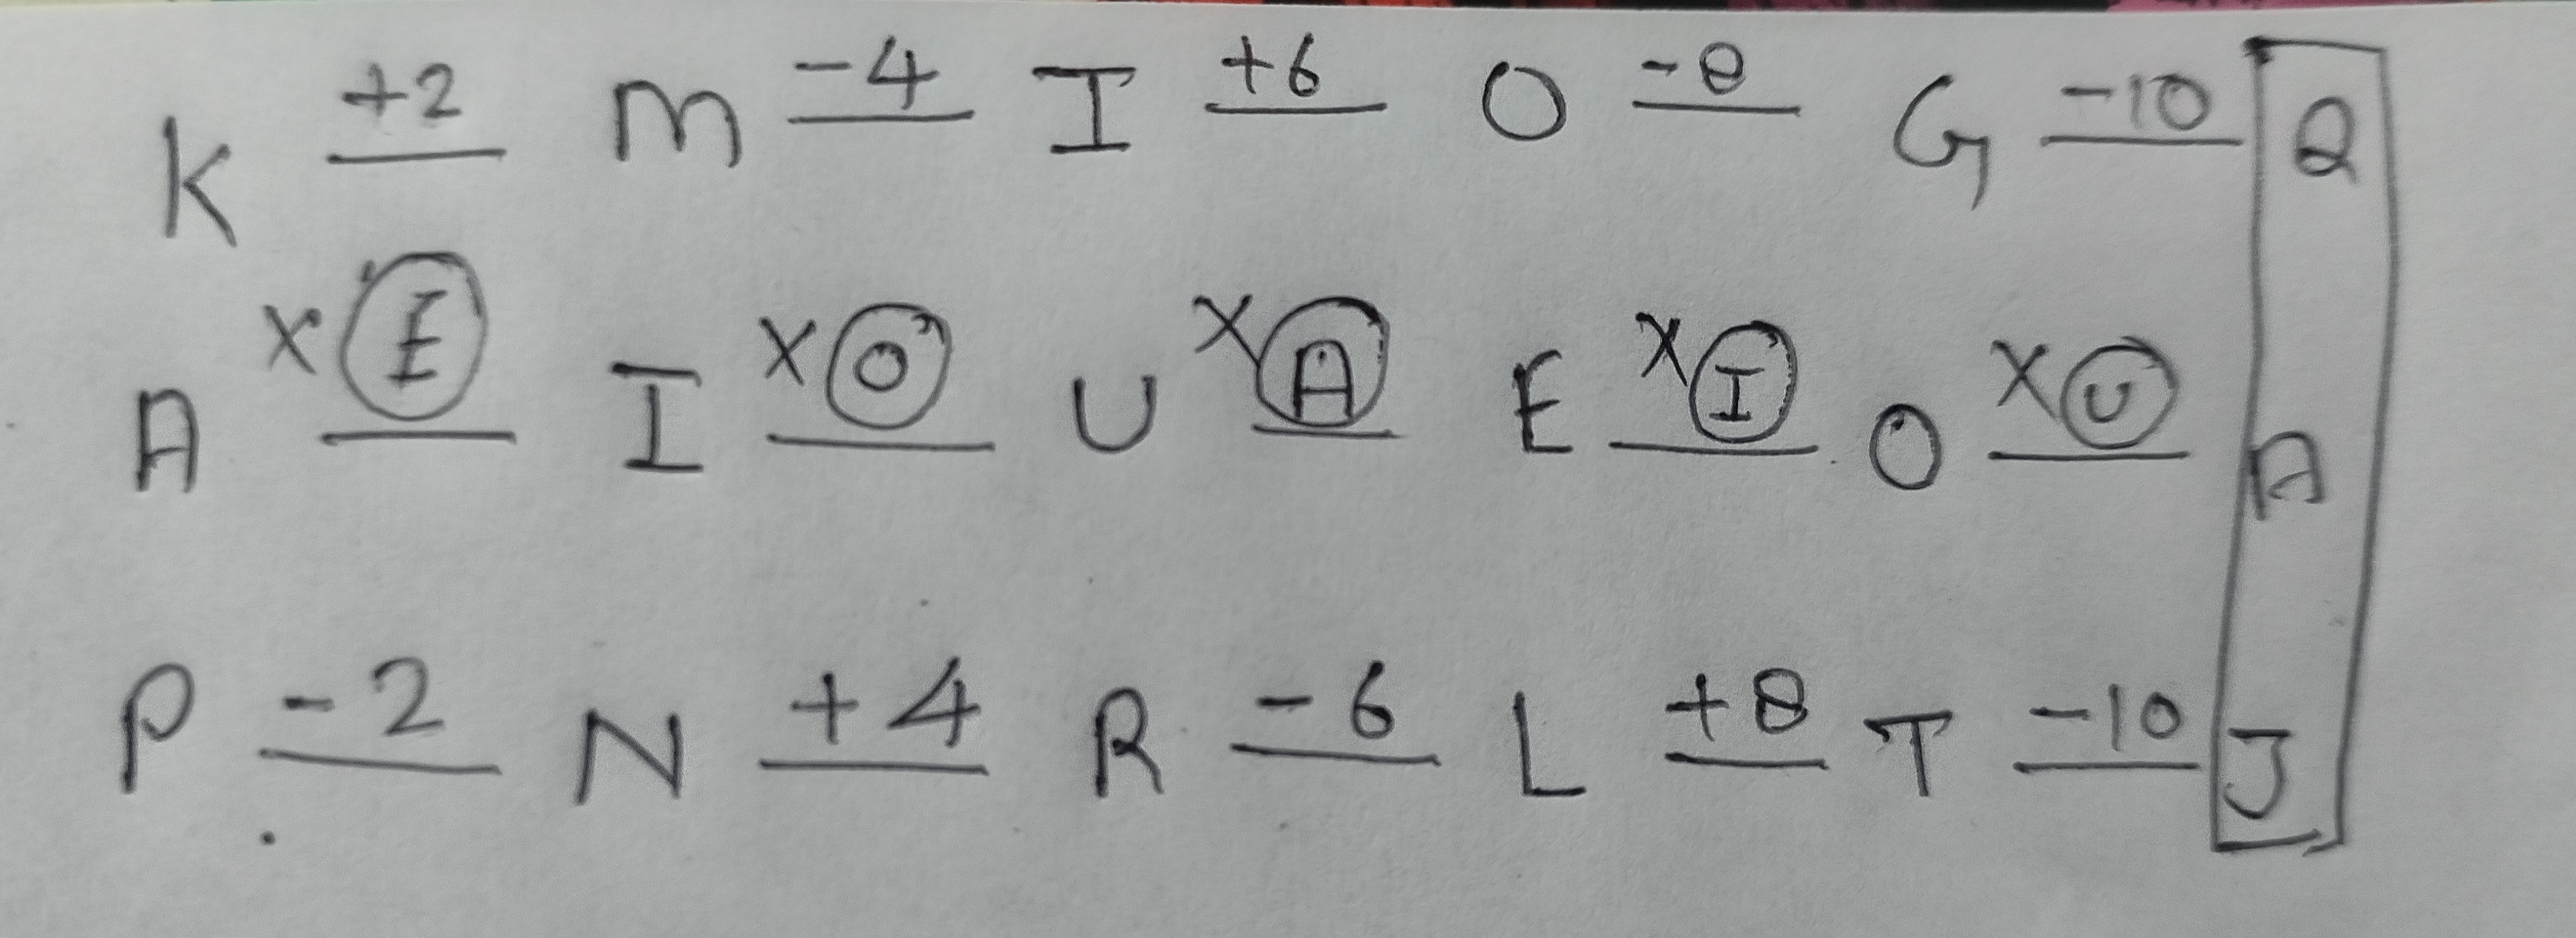 K +2 M -4 I +6 O -8 G -10 Q
A X E I X O U X A E X I O X U A
P -2 N +4 R -6 L +8 T -10 J